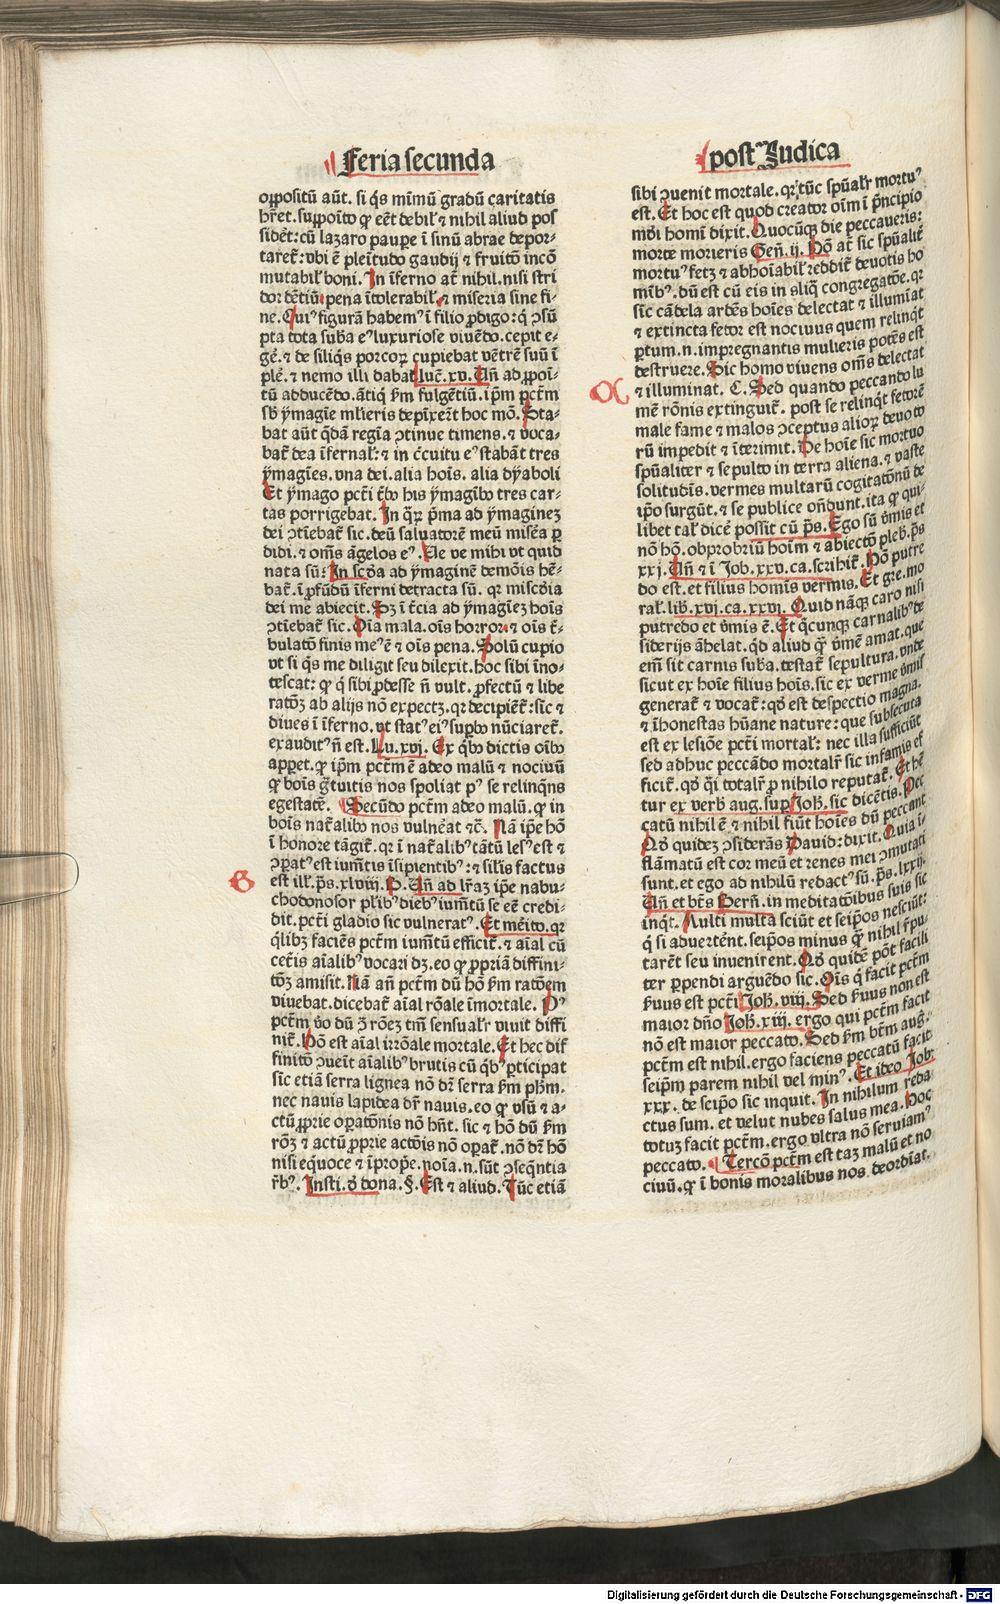 Feria secunda
oppositũ aũt. si q̃s mĩmũ gradũ caritatis
hr̃et. suppoĩto ꝙ eẽt debil᷑ ⁊ nihil aliud pos
sidẽt: cũ lazaro paupe ĩ sinũ abrae depor-
taret᷑: vbi ẽ plẽitudo gaudij ⁊ fruitõ incõ
mutabil᷑ boni. In ĩferno at᷑ nihil. nisi stri
dor dẽtiũ pena ĩtolerabil᷑. ⁊ miseria sine fi-
ne. Cuiꝰ figurã habemꝰ ĩ filio ꝓdigo: q̃ ꝯsũ
pta tota sub̃a eꝰ luxuriose viuẽdo. cepit e-
gẽ. ⁊ de siliq̃s porcoꝝ cupiebat vẽtrẽ suũ ĩ
plẽ. ⁊ nemo illi dabat Luc̃. xv. Un̄ ad ꝓpoĩ-
tũ adducẽdo. ãtiq̃ ẜm fulgẽtiũ. ip̃m pctm̃
sb̃ ymagĩe ml̃ieris depĩxer̃t hoc mõ. Sta-
bat aũt q̃dã regĩa ꝯtinue timens. ⁊ voca-
bat᷑ dea ĩfernal᷑: ⁊ in c̃cuitu eꝰ stabãt tres
ymagĩes. vna dei. alia hoĩs. alia dyaboli
Et ymago pcti t̃bꝰ his ymagĩbꝰ tres car-
tas porrigebat. In q̃ꝝ p̃ma ad ymaginez
dei ꝯtiebat᷑ sic. deũ saluatorẽ meũ misẽa ꝑ
didi. ⁊ om̃s ãgelos eꝰ. Ue ve mihi vt quid
nata sũ: In scd̃a ad ymaginẽ demõis hẽ-
bat᷑. ĩ ꝓfũdũ ĩferni detracta sũ. qꝛ misc̃dia
dei me abiecit. Sz ĩ t̃cia ad ymagĩez hoĩs
ꝯtiebat᷑ sic. Oĩa mala. oĩs horror. ⁊ oĩs t᷑-
bulatõ finis meꝰ ẽ ⁊ oĩs pena. Solũ cupio
vt si q̃s me diligit seu dilexit. hoc sibi ĩno-
tescat: ꝙ q̃ sibi ꝓdesse ñ vult. ꝓfectũ ⁊ libe
ratõz ab alijs nõ expectz. qꝛ decipiet᷑: sic ⁊
diues ĩ ĩferno. vt statꝰ eiꝰ supbꝰ nũciaret᷑.
exauditꝰ ñ est. Lu. xvj. Ex q̃bꝰ dictis oĩbꝰ
apꝑet. ꝙ ip̃m pctm̃ ẽ adeo malũ ⁊ nociuũ
ꝙ boĩs g̃tuitis nos spoliat pꝰ se relinq̃ns
egestatẽ. Secũdo pctm̃ adeo malũ. ꝙ in
boĩs nat᷑alibꝰ nos vulnẽat ⁊c̃. Nã ip̃e hõ
ĩ honore tãgit᷑. qꝛ ĩ nat᷑alibꝰ tãtũ lesꝰ est ⁊
ꝯꝑatꝰ est iumẽtis ĩsipientibꝰ: ⁊ sil̃is factus
est ill᷑. p̃s. xlviii. B. Un̄ ad lr̃az ip̃e nabu-
chodonosor pl̃ibꝰ diebꝰ iumẽtũ se eẽ credi-
dit. pcti gladio sic vulneratꝰ. Et mẽito. qꝛ
q̃libz faciẽs pctm̃ iumẽtũ efficit᷑. ⁊ aĩal cũ
cet̃is aĩalibꝰ vocari dz. eo ꝙ ꝓpriã diffini-
tõz amisit. Nã añ pctm̃ dũ hõ ẜm ratõem
viuebat. dicebat᷑ aĩal rõale ĩmortale. Pꝰ
pctm̃ ṽo dũ ꝯ̃ rõez tm̃ sensual᷑r viuit diffi
nit᷑. Hõ est aĩal irrõale mortale. Et hec dif
finitõ ꝯueĩt aĩalibꝰ brutis cũ q̃bꝰ ꝑticipat
sic etiã serra lignea nõ dr̃ serra ẜm ph̃m.
nec nauis lapidea dr̃ nauis. eo ꝙ vsũ ⁊ a-
ctũ ꝓprie oꝑatõnis nõ hñt. sic ⁊ hõ dũ ẜm
rõz ⁊ actũ ꝓprie actõis nõ oꝑat᷑. nõ dr̃ hõ
nisi eq̃uoce ⁊ ĩprop̃e. noĩa. n. sũt ꝯseq̃ntia
r̃bꝰ. Insti. d̃ dona. §. Est ⁊ aliud. Tũc etiã
G
post Iudica
sibi ꝯuenit mortale. qꝛ tũc spũal᷑r mortuꝰ
est. Et hoc est quod creator oĩm ĩ p̃ncipio
mũdi homĩ dixit. Quocũqꝫ die peccaueris:
morte morieris Geñ. ij. Hõ at᷑ sic spũalit᷑
mortuꝰ fetz ⁊ abhoĩabil᷑ reddit᷑ deuotis ho
mĩbꝰ. dũ est cũ eis in aliq̃ congregatõe. qꝛ
sic cãdela ardẽs hoĩes delectat ⁊ illumĩat
⁊ extincta fetor est nociuus quem relinq̃t
ꝑtum. n. impregnantis mulieris potẽs est
destruere. Sic homo viuens om̃s delectat
⁊ illuminat. C. Sed quando peccando lu
mẽ rõnis extinguit᷑. post se relinq̃t fetorẽ
male fame ⁊ malos ꝯceptus alioꝝ deuoto
rũ impedit ⁊ ĩterimit. De hoĩe sic mortuo
spũaliter ⁊ sepulto in terra aliena. ⁊ vaste
solitudĩs. vermes multarũ cogitatõnũ de
ip̃o surgũt. ⁊ se publice oñdunt. ita ꝙ qui-
libet tal᷑ dicẽ possit cũ p̃s. Ego sũ v̾mis et
nõ hõ. obprobriũ hoĩm ⁊ abiectõ pleb̃. p̃s
xxj. Un̄ ⁊ ĩ Job. xxv. ca. scribit᷑. Hõ putre
do est. et filius homis vermis. Et gre. mo
ral᷑. lib. xvj. ca. xxvi. Quid nãqꝫ caro nisi
putredo et v̾mis ẽ. Et q̃cunqꝫ carnalibꝰ de
siderijs ãhelat. qd̃ aliud q̃ꝫ v̾mẽ amat. que
em̃ sit carnis sub̃a. testat᷑ sepultura. vnde
sicut ex hoĩe filius hoĩs. sic ex verme v̾mis
generat᷑ ⁊ vocat᷑: qd̃ est despectio magna.
⁊ ĩhonestas hũane nature: que subsecuta
est ex lesiõe pcti mortal᷑: nec illa sufficiũt
sed adhuc peccãdo mortal᷑r sic infamis ef
ficit᷑. qd̃ q̃i total᷑r ꝓ nihilo reputat᷑. Et hẽ
tur ex verb̃ aug. sup Joh̃. sic dicẽtis. Pec
catũ nihil ẽ ⁊ nihil fiũt hoĩes dũ peccant
Qd̃ quidez ꝯsiderãs Dauid: dixit. Quia ĩ-
flãmatũ est cor meũ et renes mei ꝯmutati
sunt. et ego ad nihilũ redactꝰ sũ. p̃s. lxxij.
Un̄ et bt̃s Berñ. in meditatõibus suis sic
inq̃t. Multi multa sciũt et seip̃os nesciũt:
q̃ si aduertẽnt. seip̃os minus q̃ꝫ nihil r̃pu-
tarẽt seu inuenirent. Qd̃ quidẽ põt facili
ter ꝑpendi arguẽdo sic. Oĩs q̃ facit pctm̃
ẜuus est pcti Joh̃. viii. Sed ẜuus non est
maior dño Joh̃. xiii. ergo qui pctm̃ facit
nõ est maior peccato. Sed ẜm bt̃m aug̃.
pctm̃ est nihil. ergo faciens peccatũ facit
seip̃m parem nihil vel minꝰ. Et ideo Job:
xxx. de seip̃o sic inquit. In nihilum reda
ctus sum. et velut nubes salus mea. Hoc
totuz facit pctm̃. ergo vltra nõ seruiamꝰ
peccato. Tercõ pctm̃ est taz malũ et no
ciuũ. ꝙ ĩ bonis moralibus nos deordĩat.
Digitalisierung gefördert durch die Deutsche Forschungsgemeinschaft - DFG